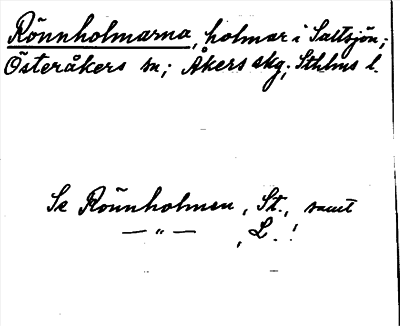 Rönnholmarna, holmar i Saltsjön;
Österåkers sn; Åkers skg; Sthlms l.
Se Rönnholmen, St., samt
— „ — , L. !